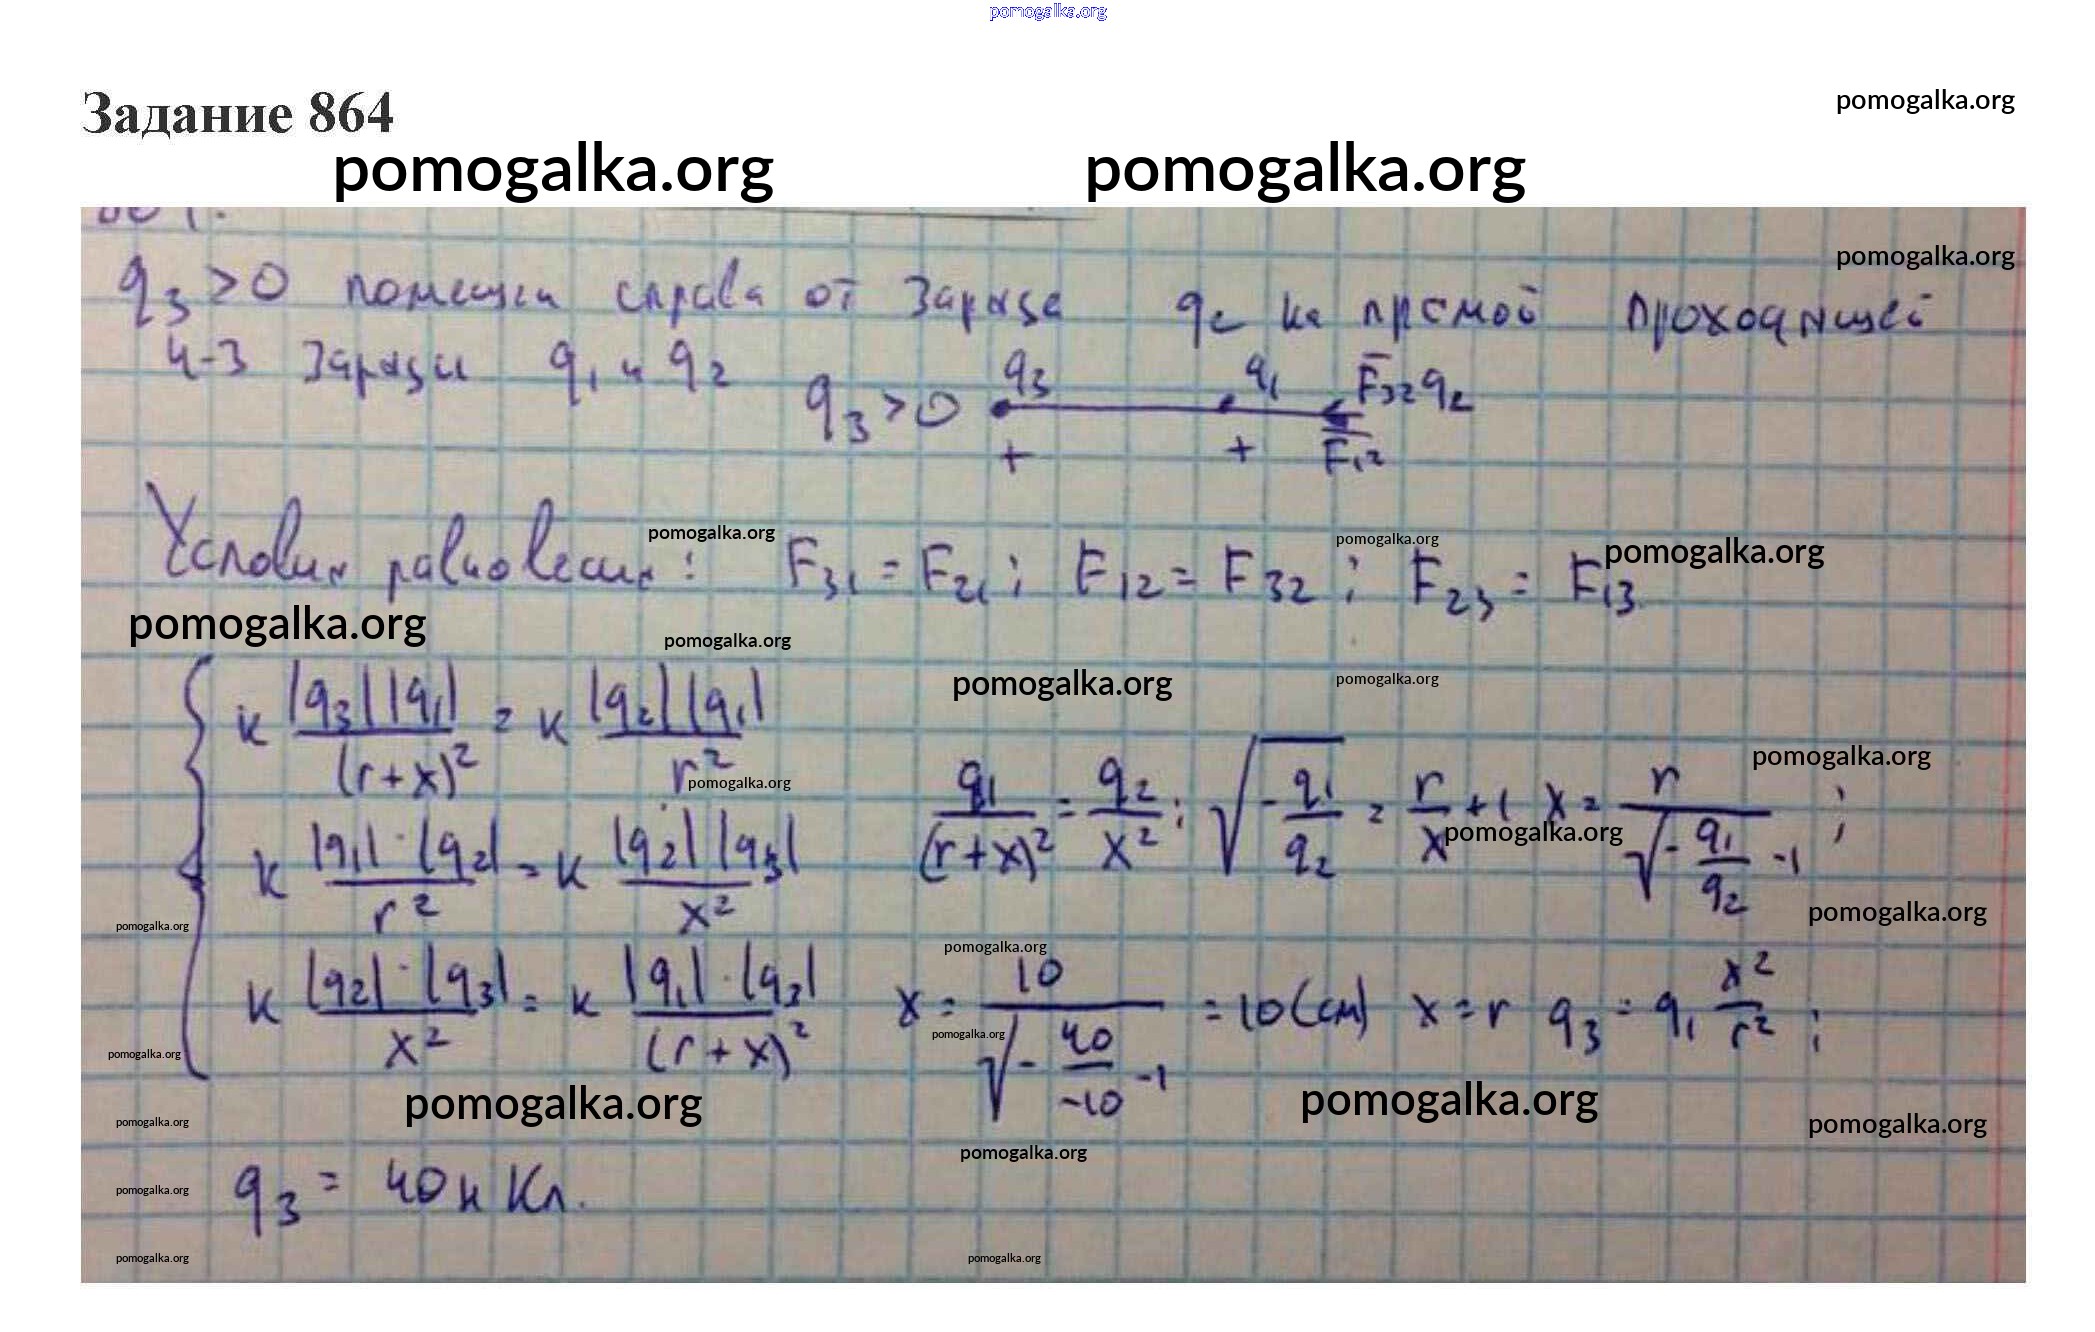 pomogalka.org
Задание 864
pomogalka.org
pomogalka.org pomogalka.org
pomogalka.org
q₃ > 0 поместим справа от заряда q₂ на прямой проходящей
ч-з заряды q₁ и q₂
q₃ > 0 q₃ q₁ F₃₂ q₂
+ + F₁₂
Условия равновесия: F₃₁ = F₂₁; F₁₂ = F₃₂; F₂₃ = F₁₃
pomogalka.org pomogalka.org pomogalka.org
pomogalka.org pomogalka.org
pomogalka.org pomogalka.org
k |q₃||q₁| / (r+x)² = k |q₂||q₁| / r²
pomogalka.org pomogalka.org
k |q₁|·|q₂| / r² = k |q₂||q₃| / x² q₁ / (r+x)² = q₂ / x²; √(-q₁/q₂) = r/x + 1 x = r / (√(-q₁/q₂) -1);
pomogalka.org
pomogalka.org pomogalka.org
pomogalka.org
k |q₂|·|q₃| / x² = k |q₁|·|q₃| / (r+x)² x = 10 / (√(-40/-10) -1) = 10 (см) x = r q₃ = q₁ x²/r²;
pomogalka.org pomogalka.org
pomogalka.org pomogalka.org
pomogalka.org pomogalka.org
pomogalka.org
q₃ = 40 нКл.
pomogalka.org
pomogalka.org pomogalka.org